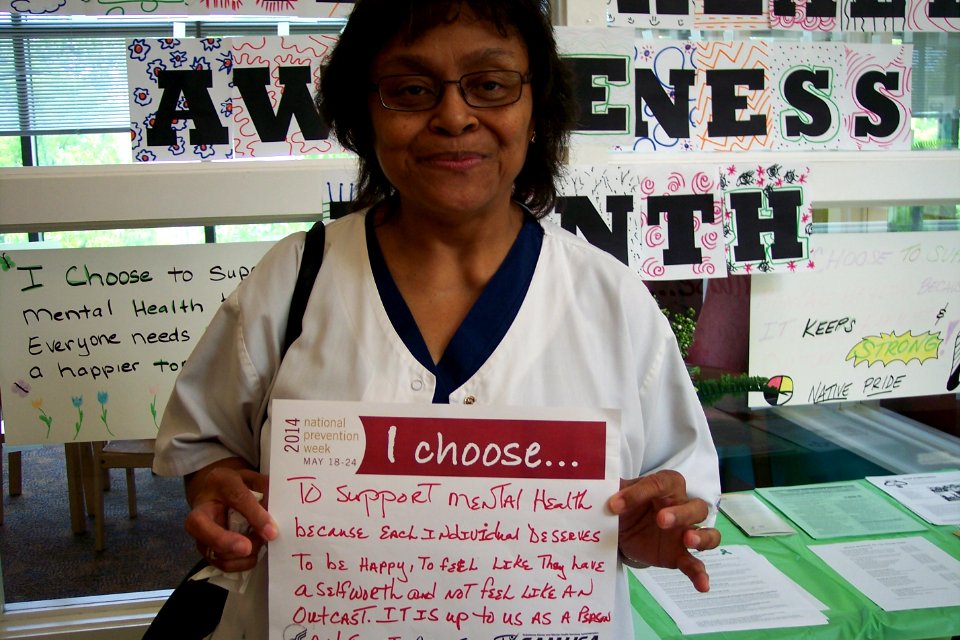 AW ENESS
NTH
I Choose to Supp
mental Health
Everyone needs
a happier
CHOOSE TO
IT KEEPS
&
STRONG
NATIVE PRIDE
2014 national
prevention
week
MAY 18-24
I choose...
To support mental Health
because Each Individual Deserves
To be Happy, To feel Like They have
a selfworth and not feel Like An
Outcast. IT Is up to us as a Person
SAMHSA